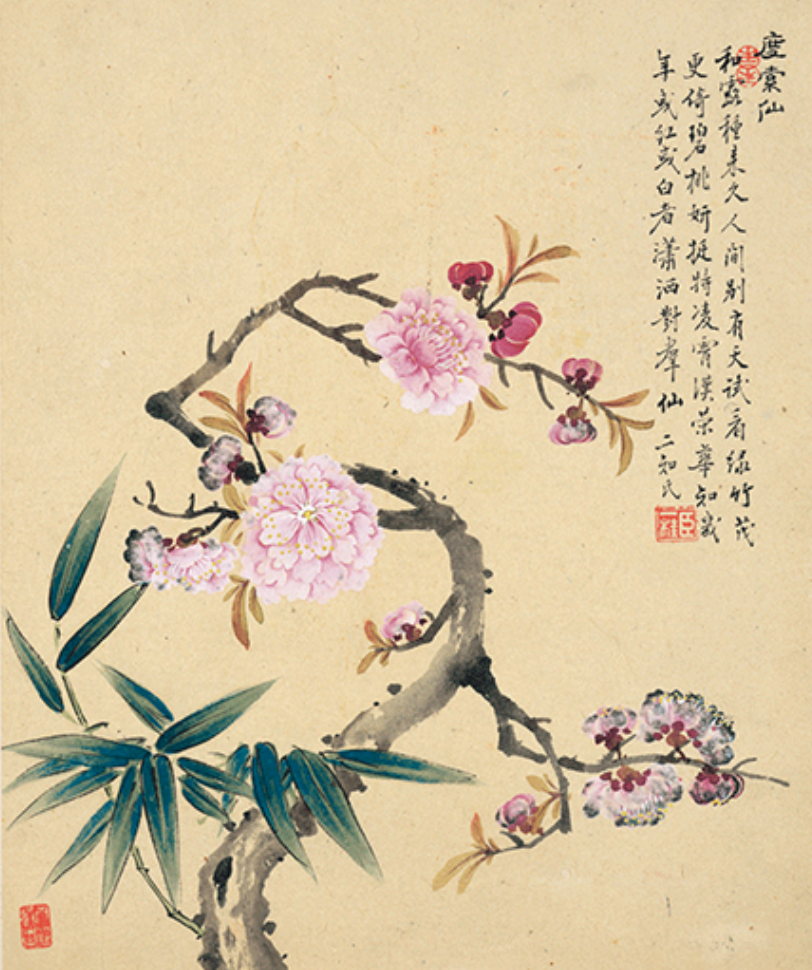 度索仙
和露種來久人間別有天試看綠竹茂
更倚碧桃妍挺特凌霄漢榮華知歲
年或紅或白者瀟洒對羣仙 二知